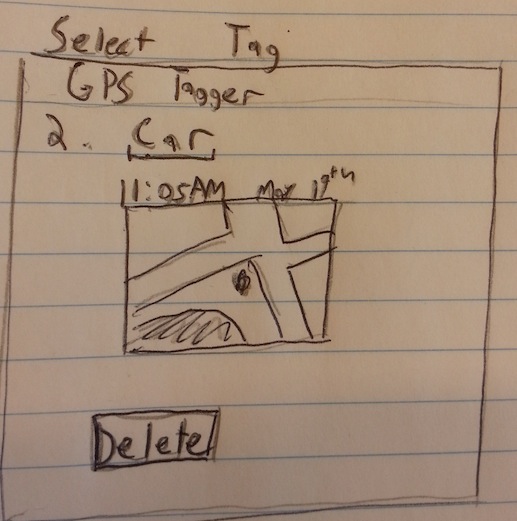 Select Tag
GPS Tagger
2. Car
11:05AM Mar 19th
Delete